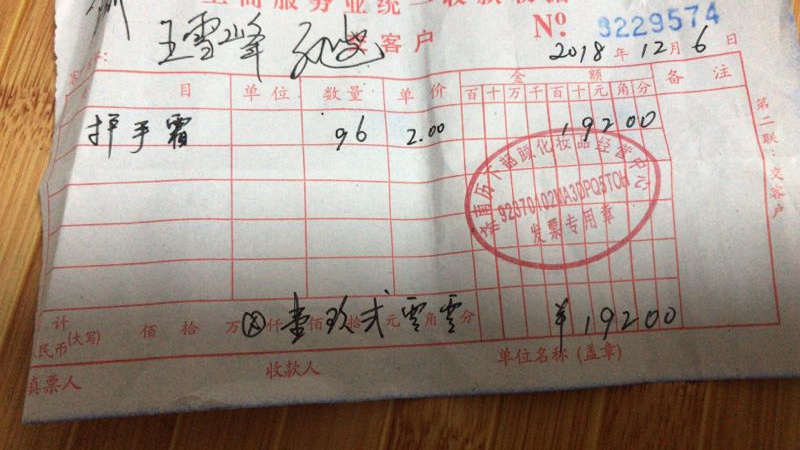 工商服务业统一收款收据
No. 9229574
王雪峰
客户
2018年12月6日
目 单位 数量 单价 金额 备注
百十万千百十元角分
护手霜 96 2.00 19200
第二联:交客户
92370102MA3DPQ5T0H
发票专用章
计
人民币(大写) 佰 拾 万⊗仟壹佰玖拾贰元零角零分 ¥19200
填票人 收款人 单位名称(盖章)